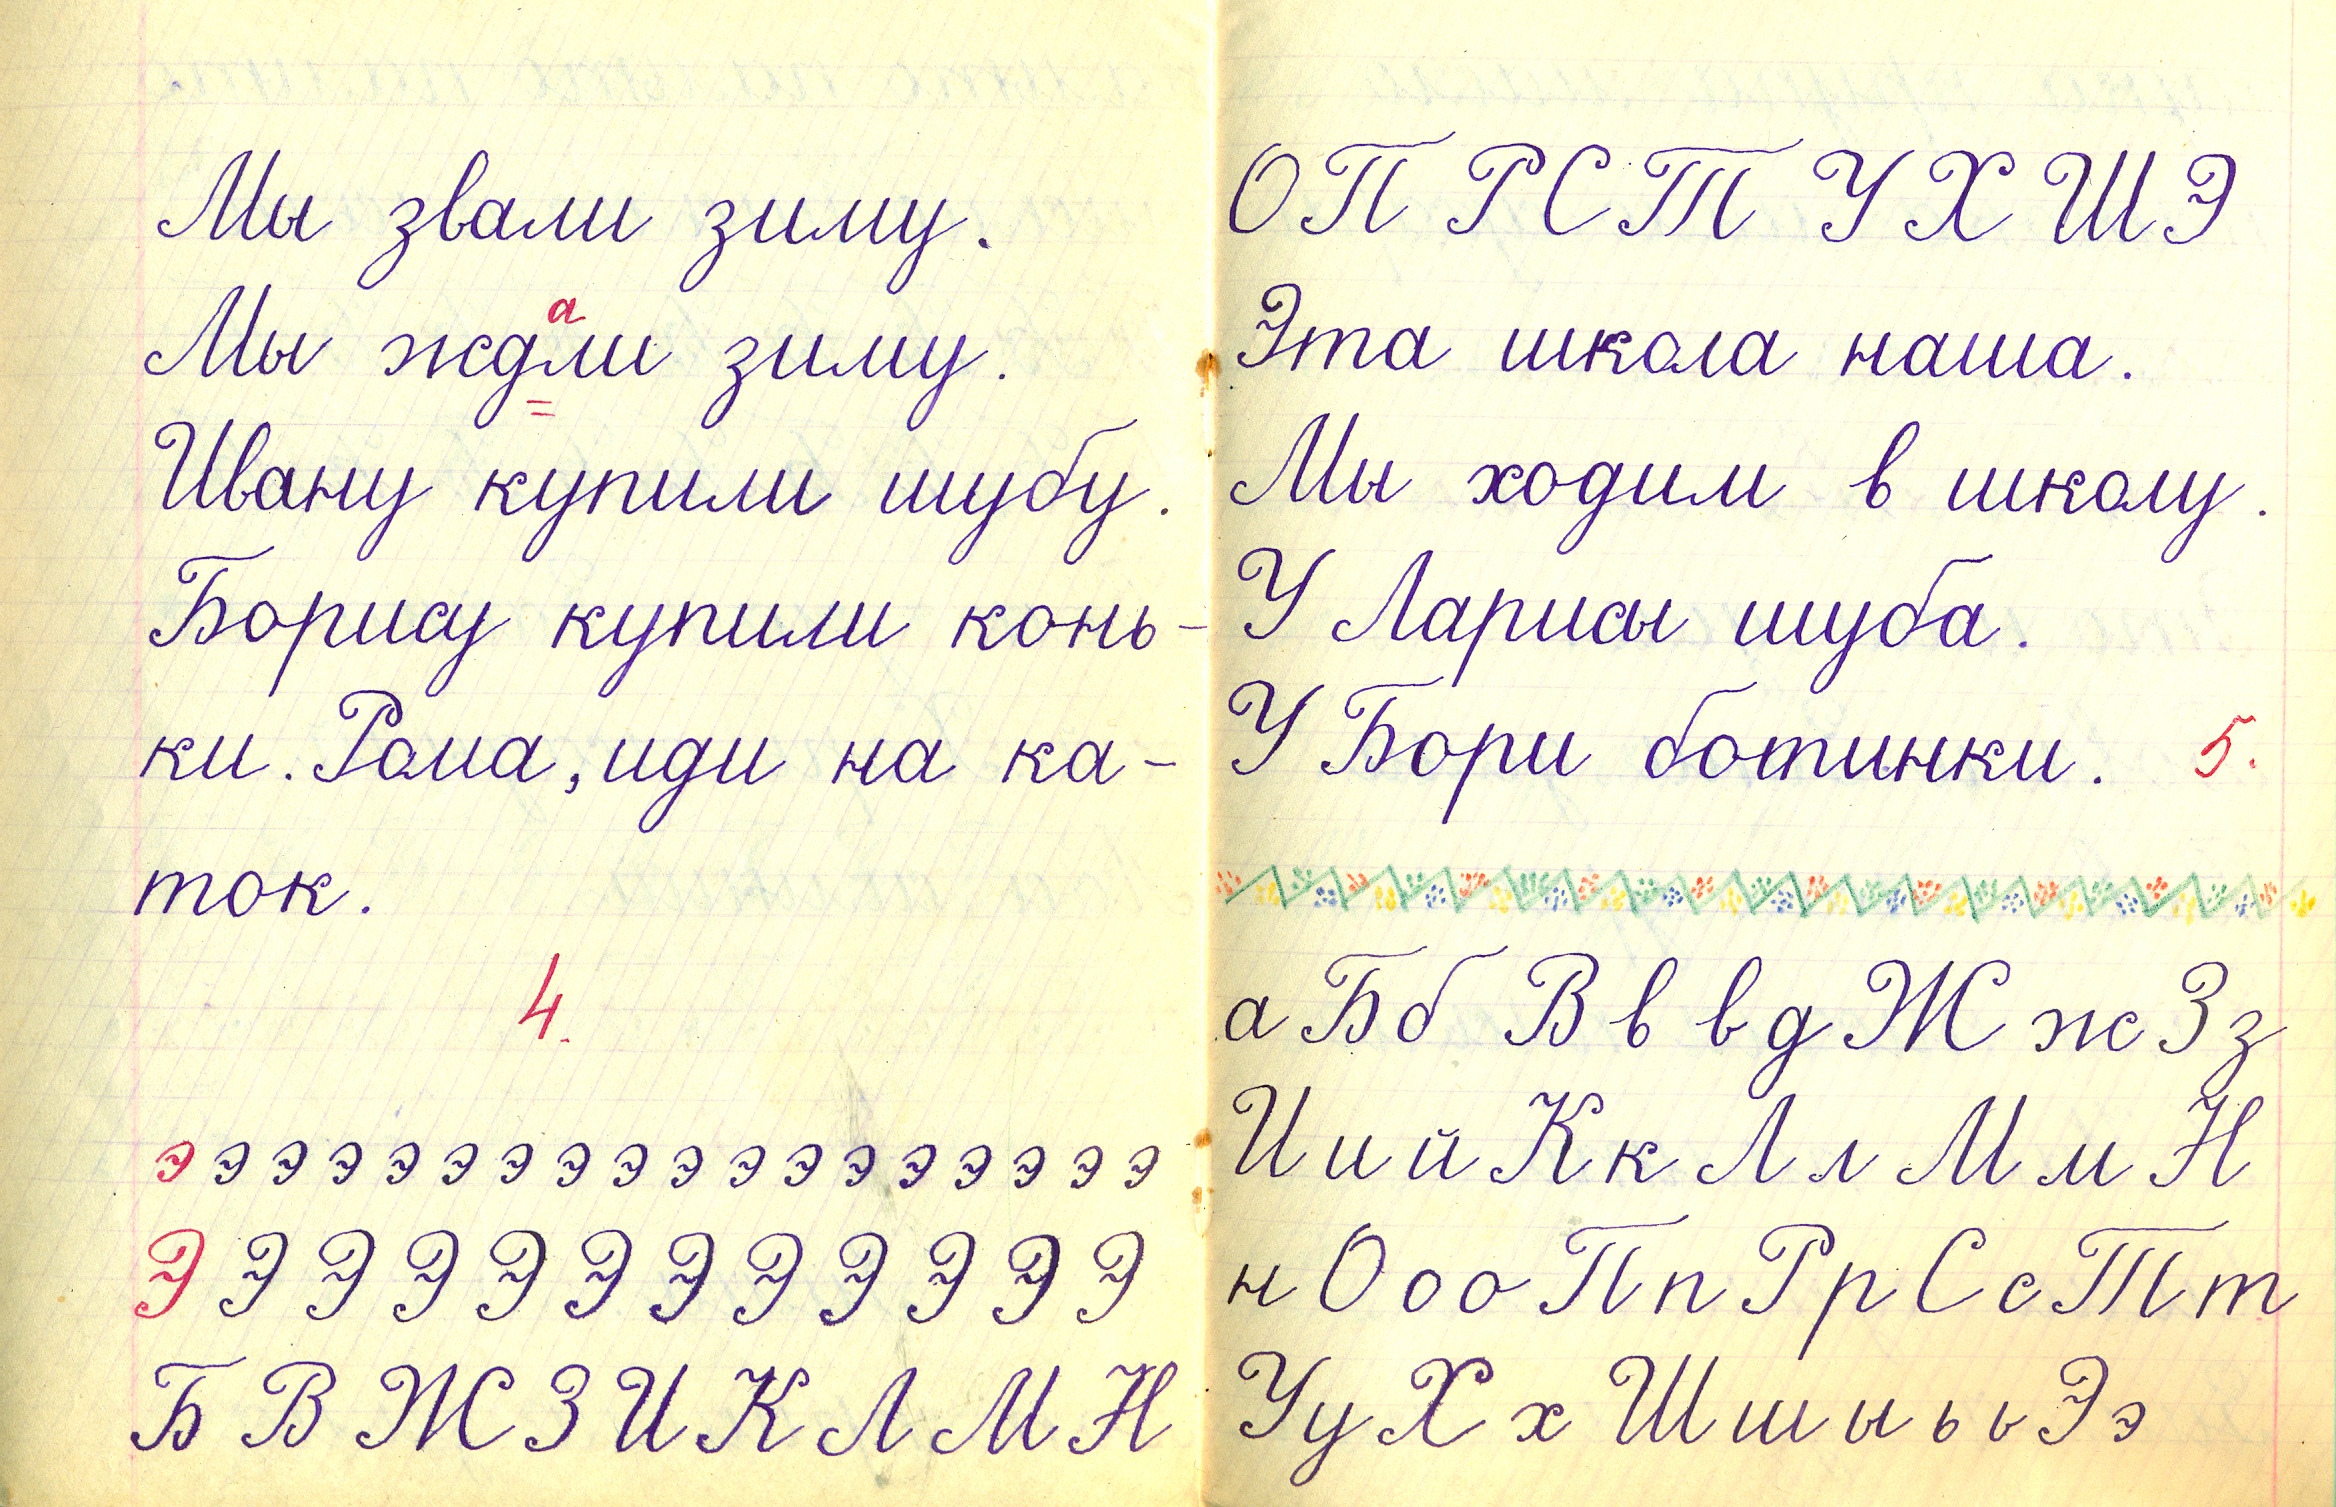 Мы звали зиму.
а
Мы ждли зиму.
Ивану купили шубу.
Борису купили конь-
ки. Рома, иди на ка-
ток.
4.
э э э э э э э э э э э э э э э э э э
Э Э Э Э Э Э Э Э Э Э Э Э
Б В Ж З И К Л М Н
О П Р С Т У Х Ш Э
Эта школа наша.
Мы ходим в школу.
У Ларисы шуба.
У Бори ботинки. 5.
а Б б В в в д Ж ж З з
И и й К к Л л М м Н
н О о о П п Р р С с Т т
У у Х х Ш ш ы ь ь Э э